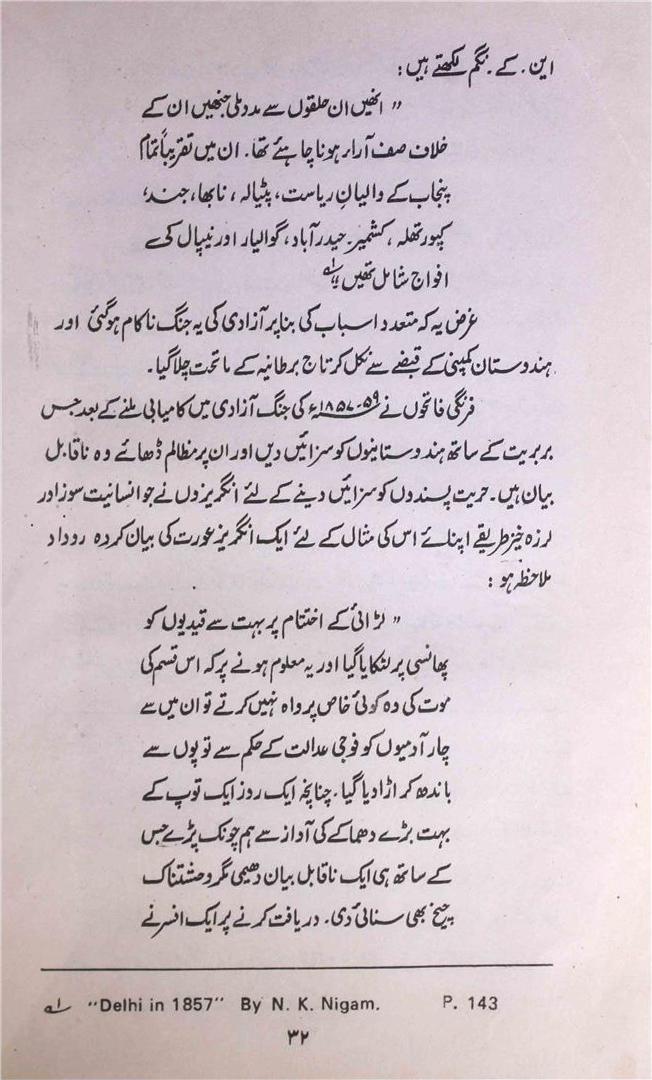 این. کے. نگم لکھتے ہیں:
" انھیں ان حلقوں سے مدد ملی جنھیں ان کے
خلاف صف آرا ہونا چاہئے تھا. ان میں تقریباً تمام
پنجاب کے والیانِ ریاست، پٹیالہ، نابھا، جند،
کپورتھلہ، کشمیر. حیدرآباد، گوالیار اور نیپال کی
افواج شامل تھیں"۱ے
غرض یہ کہ متعدد اسباب کی بنا پر آزادی کی یہ جنگ ناکام ہوگئی اور
ہندوستان کمپنی کے قبضے سے نکل کر تاج برطانیہ کے ماتحت چلا گیا۔
فرنگی فاتحوں نے ۵۹-۱۸۵۷ء کی جنگ آزادی میں کامیابی ملنے کے بعد جس
بربریت کے ساتھ ہندوستانیوں کو سزائیں دیں اور ان پر مظالم ڈھائے وہ ناقابل
بیان ہیں۔ حریت پسندوں کو سزائیں دینے کے لئے انگریزوں نے جو انسانیت سوز اور
لرزہ خیز طریقے اپنائے اس کی مثال کے لئے ایک انگریز عورت کی بیان کردہ روداد
ملاحظہ ہو:
" لڑائی کے اختتام پر بہت سے قیدیوں کو
پھانسی پر لٹکایا گیا اور یہ معلوم ہونے پر کہ اس قسم کی
موت کی وہ کوئی خاص پرواہ نہیں کرتے تو ان میں سے
چار آدمیوں کو فوجی عدالت کے حکم سے توپوں سے
باندھ کر اڑا دیا گیا۔ چنانچہ ایک روز ایک توپ کے
بہت بڑے دھماکے کی آواز سے ہم چونک پڑے جس
کے ساتھ ہی ایک ناقابل بیان دھیمی مگر وحشتناک
چیخ بھی سنائی دی۔ دریافت کرنے پر ایک افسر نے
۱ے "Delhi in 1857" By N. K. Nigam. P. 143
۳۲